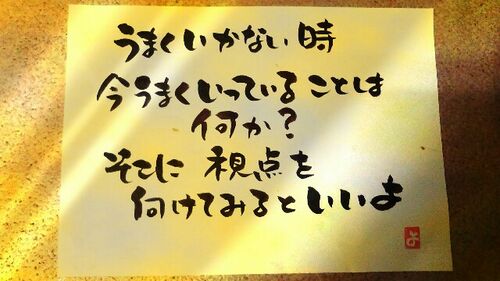 うまくいかない時
今うまくいっていることは
何か?
そこに 視点を
向けてみるといいよ
よ